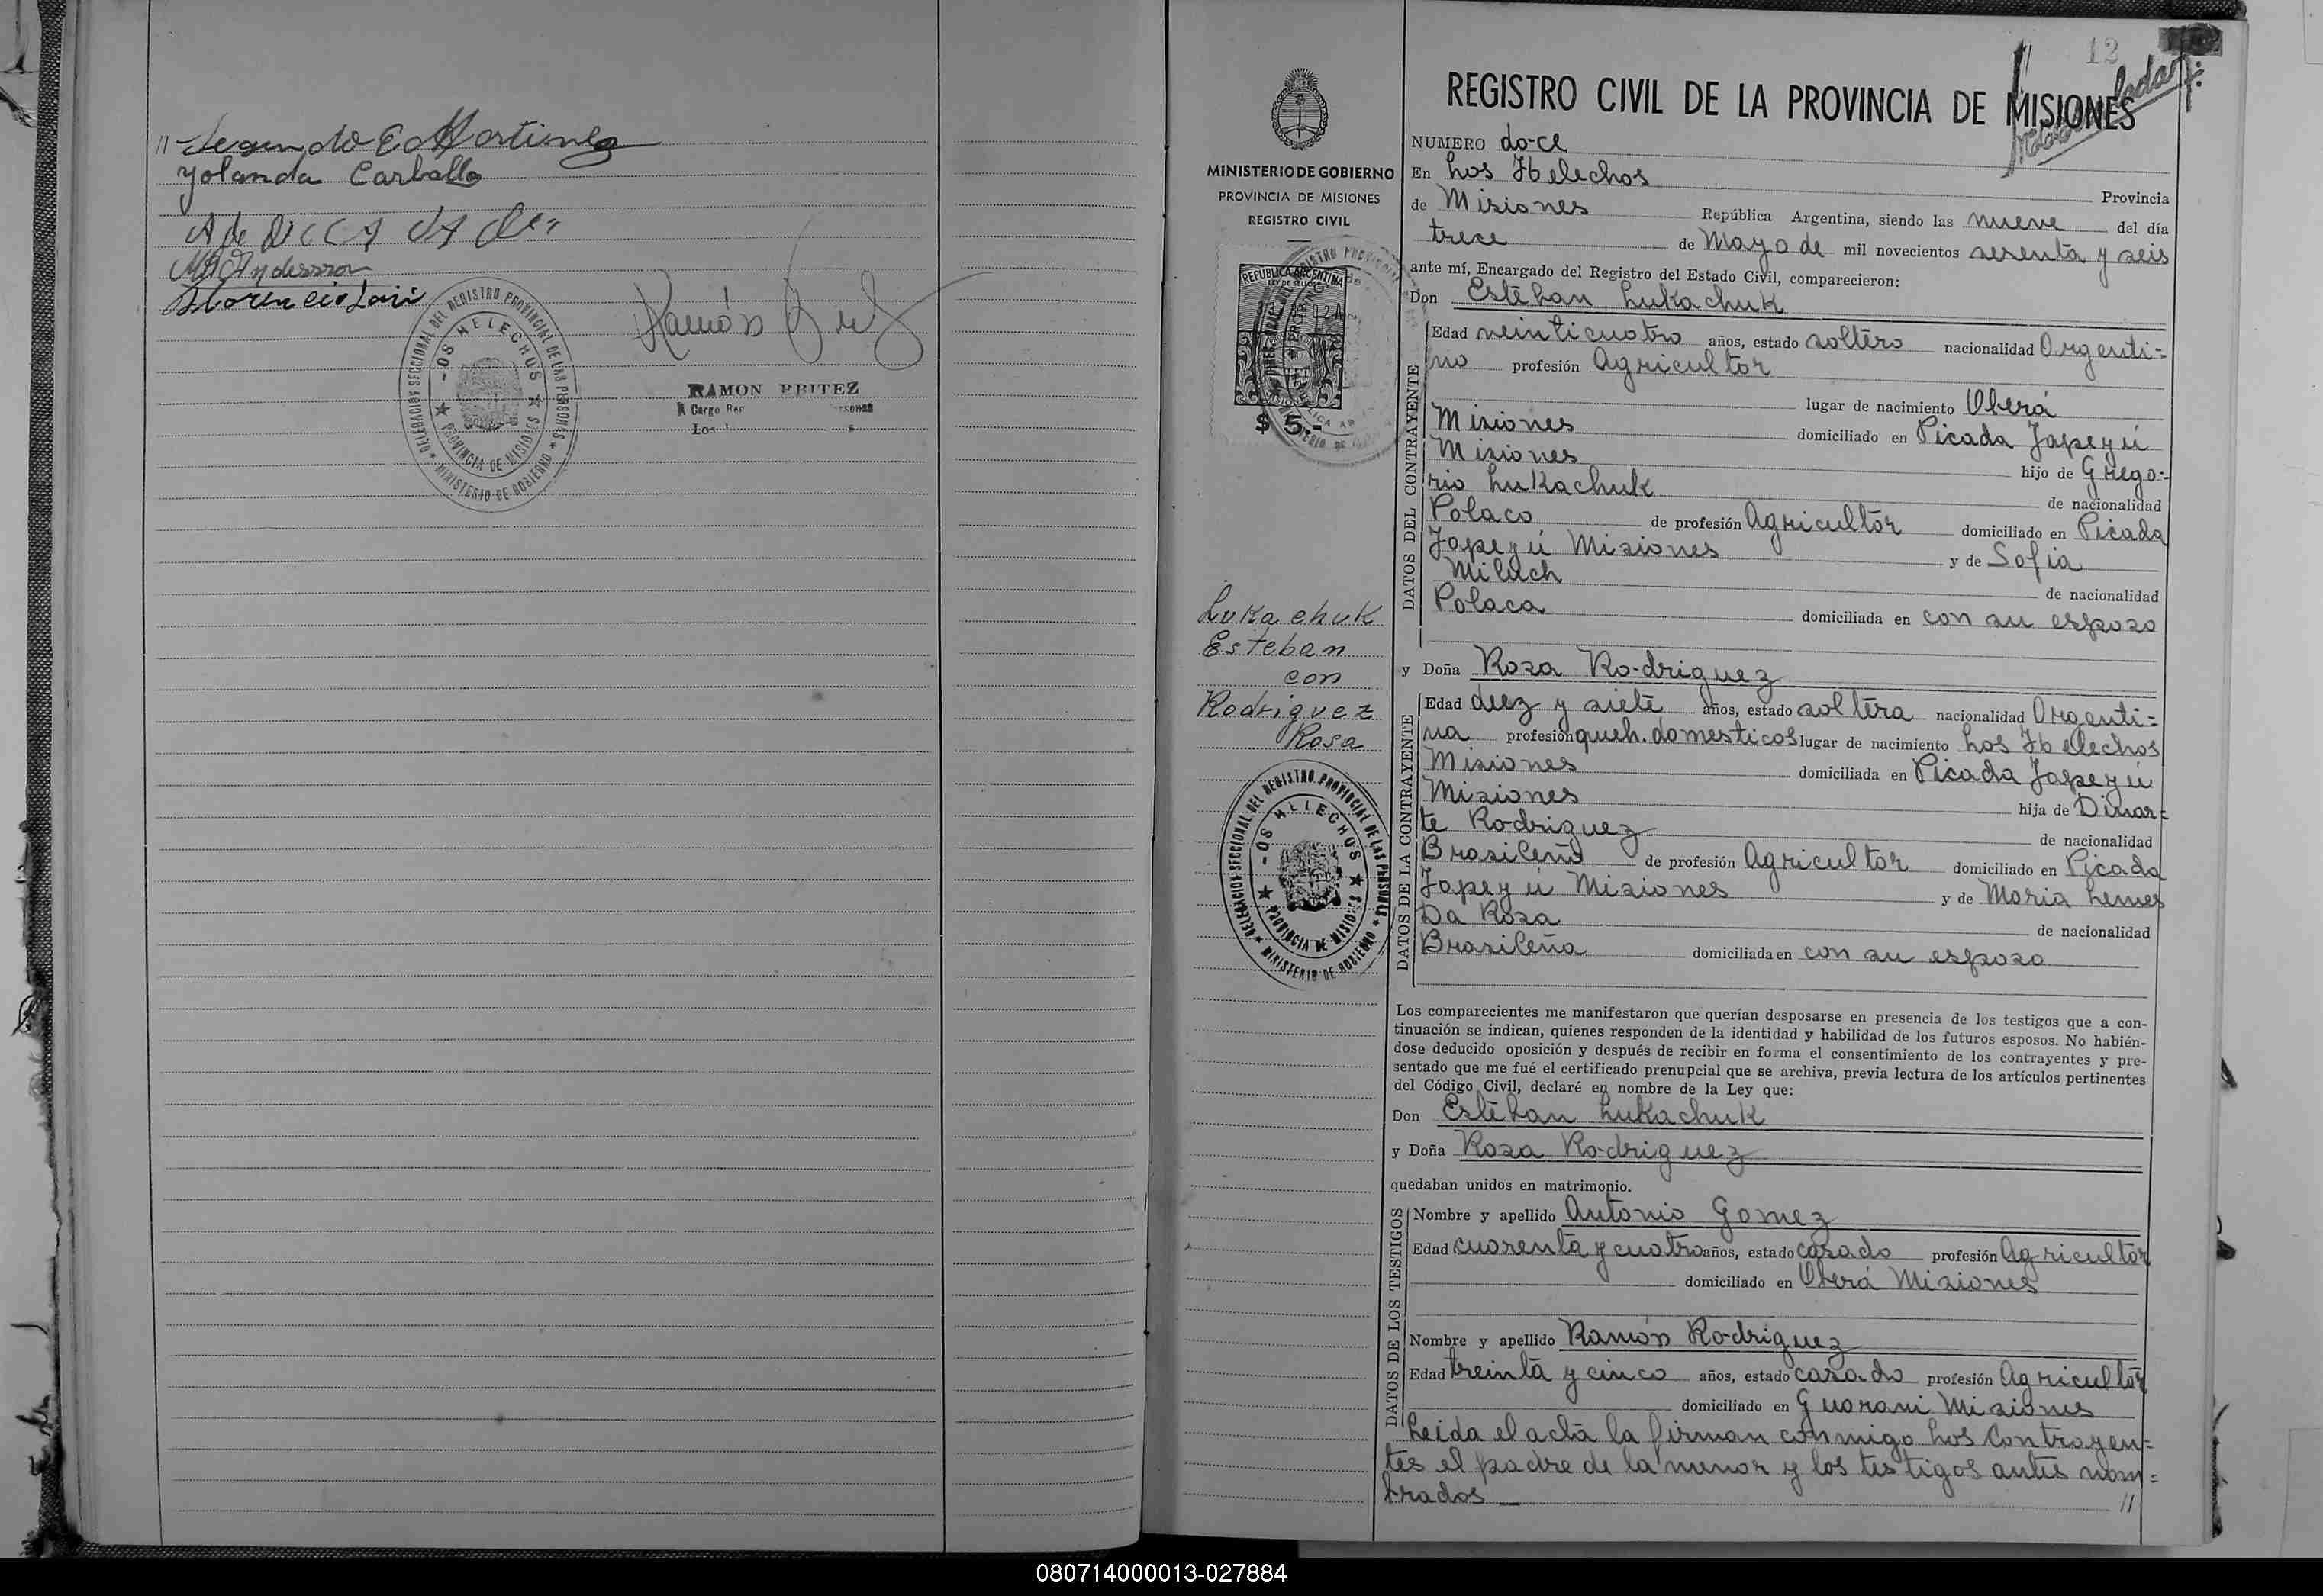 // Segundo E Martinez
Yolanda Carballo
Florencio
Ramón
DELEGACION SECCIONAL DEL REGISTRO PROVINCIAL DE LAS PERSONAS
LOS HELECHOS
PROVINCIA DE MISIONES
MINISTERIO DE GOBIERNO
RAMON BRITEZ
A Cargo Reg
Los
12
MINISTERIO DE GOBIERNO
PROVINCIA DE MISIONES
REGISTRO CIVIL
REPUBLICA ARGENTINA
LEY DE SELLOS
$ 5.-
Lukachuk
Esteban
con
Rodriguez
Rosa
DELEGACION SECCIONAL DEL REGISTRO PROVINCIAL DE LAS PERSONAS
LOS HELECHOS
PROVINCIA DE MISIONES
MINISTERIO DE GOBIERNO
REGISTRO CIVIL DE LA PROVINCIA DE MISIONES
NUMERO doce
En Los Helechos Provincia
de Misiones República Argentina, siendo las nueve del día
trece de Mayo de mil novecientos sesenta y seis
ante mí, Encargado del Registro del Estado Civil, comparecieron:
Don Estéban Lukachuk
DATOS DEL CONTRAYENTE
Edad veinticuatro años, estado soltero nacionalidad Argenti=
no profesión Agricultor
lugar de nacimiento Oberá
Misiones domiciliado en Picada Japeyú
Misiones hijo de Grego=
rio Lukachuk de nacionalidad
Polaco de profesión Agricultor domiciliado en Picada
Japeyú Misiones y de Sofia
Milach de nacionalidad
Polaca domiciliada en con su esposo
y Doña Rosa Rodriguez
DATOS DE LA CONTRAYENTE
Edad diez y siete años, estado soltera nacionalidad Argenti=
na profesión queh. domesticos lugar de nacimiento Los Helechos
Misiones domiciliada en Picada Japeyú
Misiones hija de Dinar=
te Rodriguez de nacionalidad
Brasileño de profesión Agricultor domiciliado en Picada
Japeyú Misiones y de Maria Lemes
Da Rosa de nacionalidad
Brasileña domiciliada en con su esposo
Los comparecientes me manifestaron que querían desposarse en presencia de los testigos que a con-
tinuación se indican, quienes responden de la identidad y habilidad de los futuros esposos. No habién-
dose deducido oposición y después de recibir en forma el consentimiento de los contrayentes y pre-
sentado que me fué el certificado prenupcial que se archiva, previa lectura de los artículos pertinentes
del Código Civil, declaré en nombre de la Ley que:
Don Estéban Lukachuk
y Doña Rosa Rodriguez
quedaban unidos en matrimonio.
DATOS DE LOS TESTIGOS
Nombre y apellido Antonio Gomez
Edad cuarenta y cuatro años, estado casado profesión Agricultor
domiciliado en Oberá Misiones
Nombre y apellido Ramón Rodriguez
Edad treinta y cinco años, estado casado profesión Agricultor
domiciliado en Guarani Misiones
Leida el acta la firman conmigo los Contrayen=
tes el padre de la menor y los testigos antes nom=
brados //
080714000013-027884